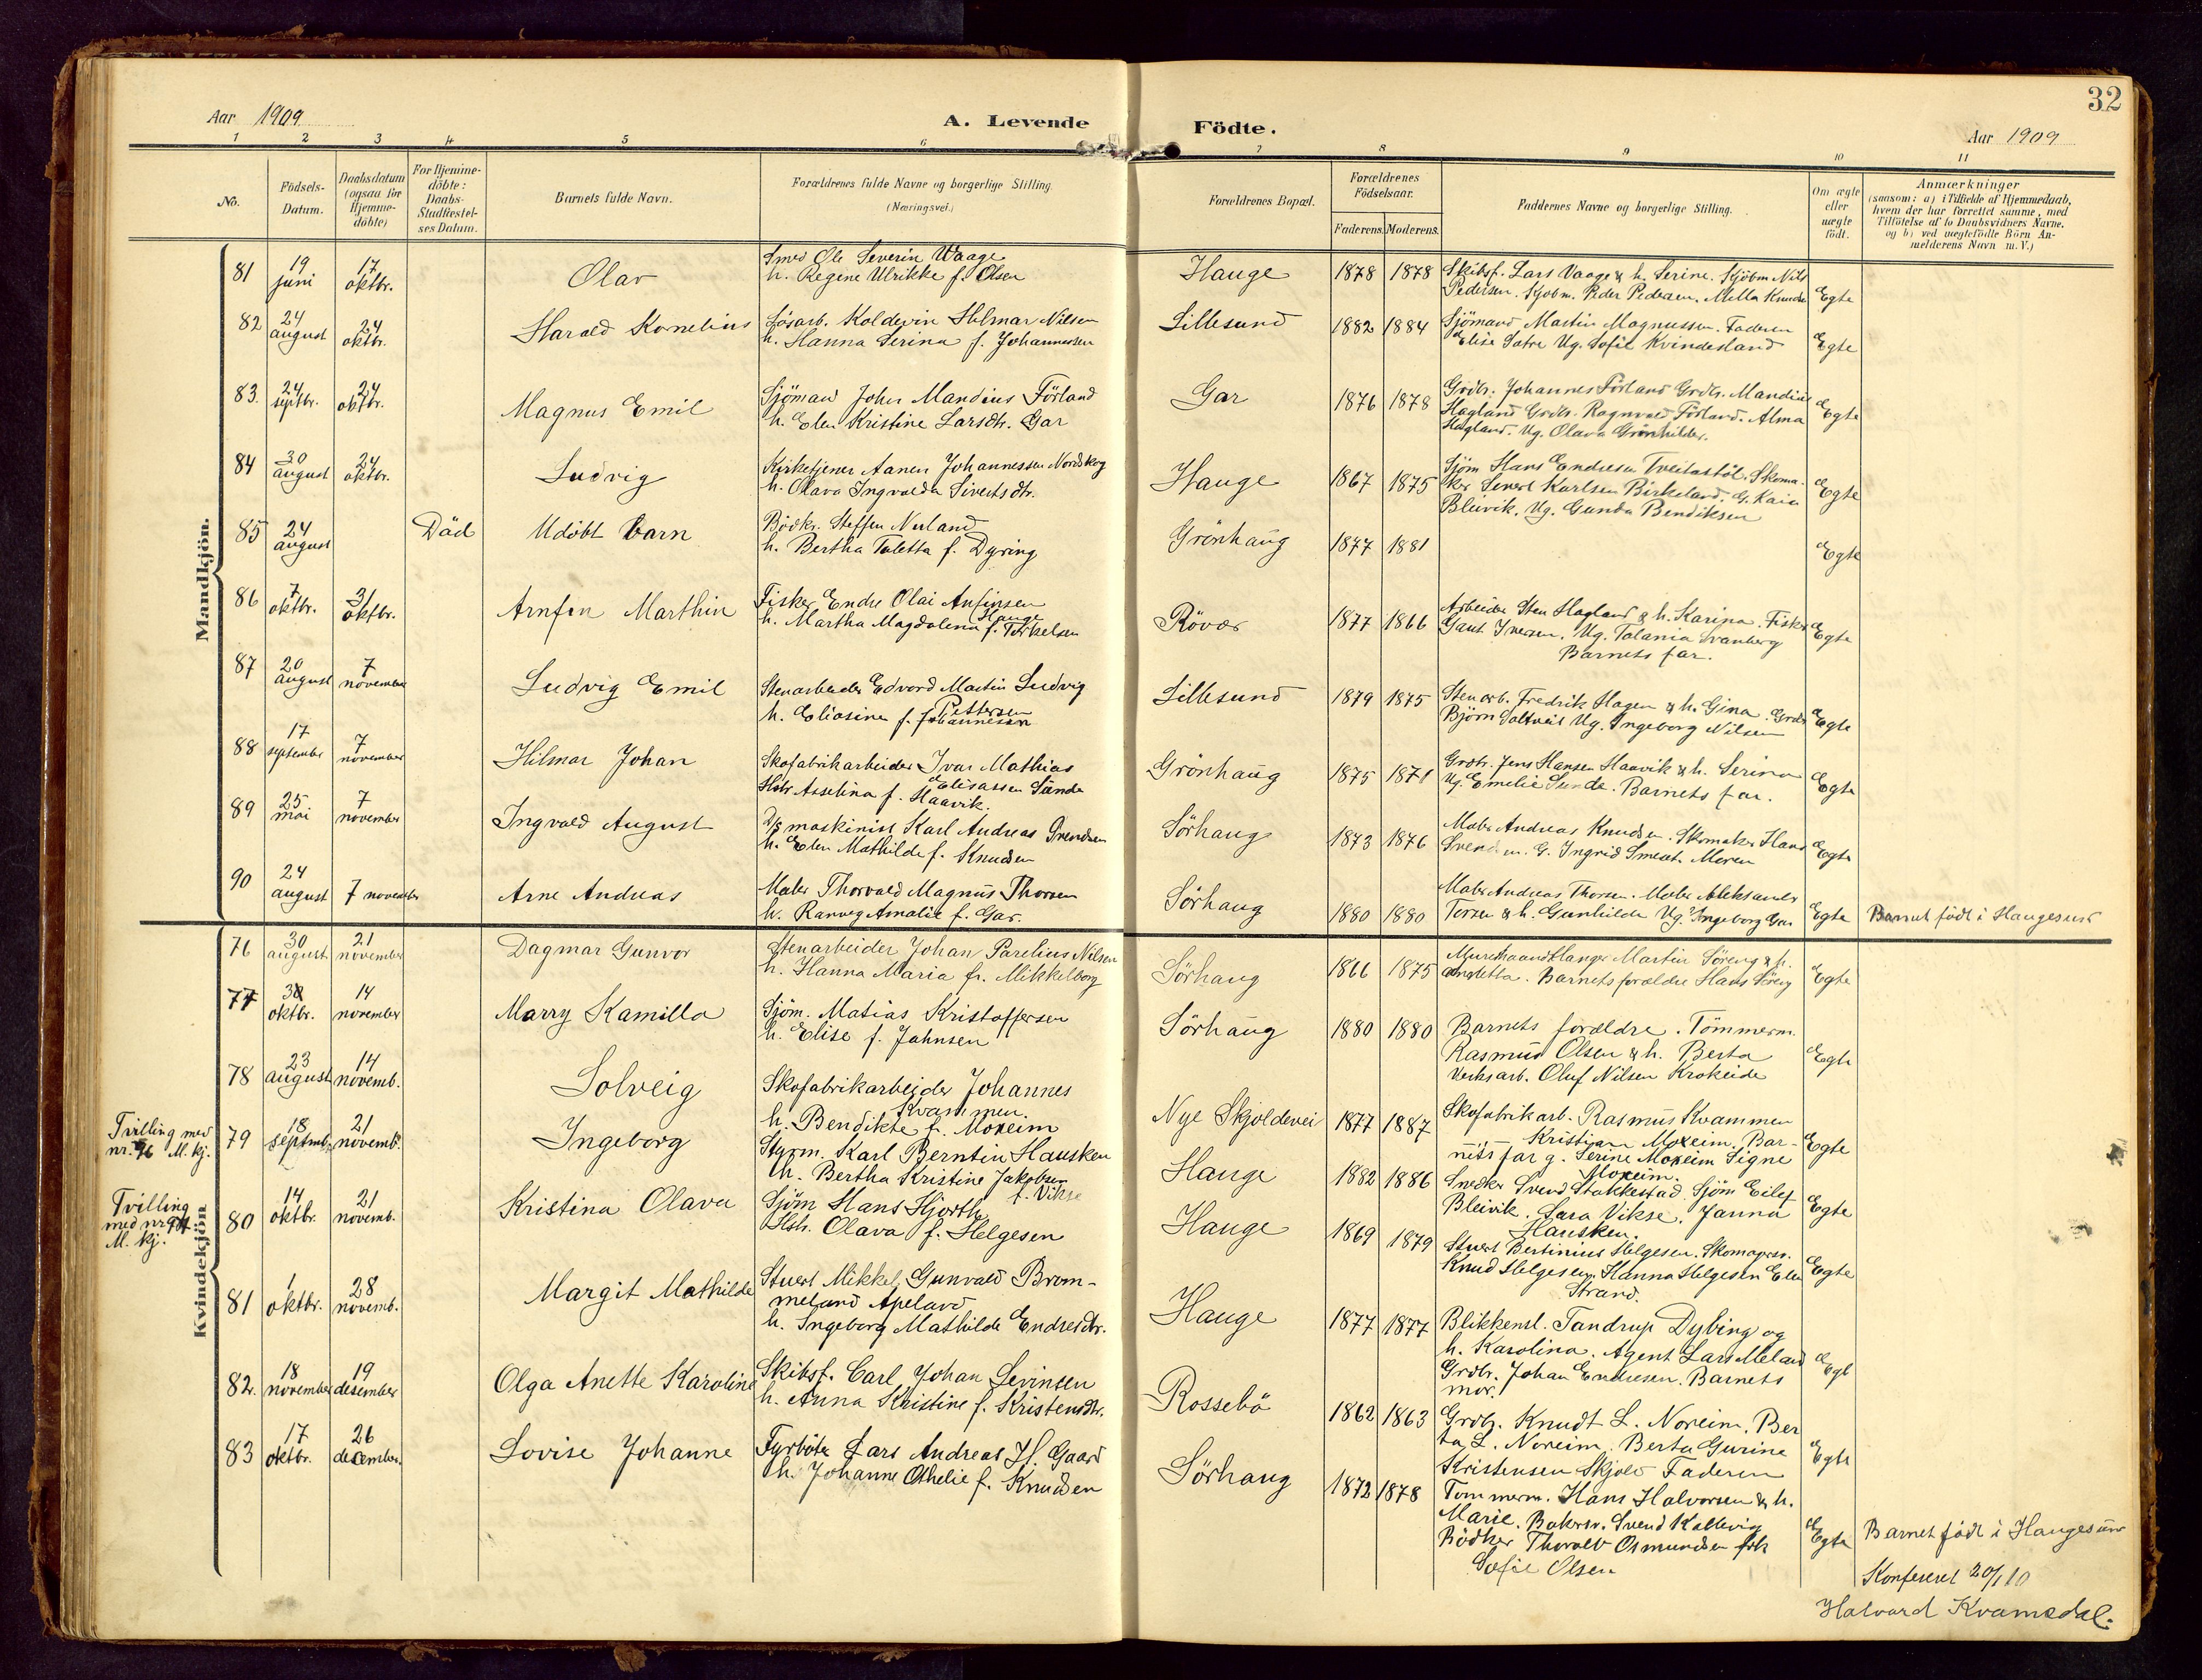 32
Aar 1909
A. Levende Födte.
Aar 1909
1 2 3 4 5 6 7 8 9 10 11
No.
Födsels-
Datum.
Daabsdatum
(ogsaa for
Hjemme-
döbte)
For Hjemme-
döbte:
Daabs-
Stadfæstel-
ses Datum.
Barnets fulde Navn.
Forældrenes fulde Navne og borgerlige Stilling.
(Næringsvei.)
Forældrenes Bopæl.
Forældrenes
Födselsaar.
Faderens. Moderens.
Faddernes Navne og borgerlige Stilling.
Om ægte
eller
uægte
födt.
Anmærkninger
(saasom: a) i Tilfælde af Hjemmedaab,
hvem der har forrettet samme, med
Tilföielse af to Daabsvidners Navne.
og b) ved uægtefödte Börn An-
melderens Navn m. V.)
Mandkjön.
81 19 juni 17 oktbr. Olav
Smed Ole Severin Waage
h. Regine Ulrikke f. Olsen
Hauge 1878 1878
Skibsf. Lars Vaage & h. Serine. Sjöbm Nils
Pedersen. Sjobm. Peder Pedersen. Mella Knudse
Egte
82 24 august 24 oktbr. Harald Kornelius
Lösarb. Koldevin Hilmar Nilsen
h. Hanna Serina f. Johannessen
Lillesund 1882 1884
Sjömand Martin Magnussen. Faderen
Elise Satre Ug. Sofie Kvindesland
Egte
83. 24 septbr. 24 oktbr. Magnus Emil
Sjömand Johs Mandius Förland
h. Elen Kristine Larsdtr. Gar
Gar 1876 1878
Grdbr. Johannes Förland Grdbr. Mandius
Hagland Grdbr. Ragnvald Förland. Alma
Hagland. Ug. Olava Grönhilder.
Egte
84 30 august 24 oktbr. Ludvig
Kirketjener Aanen Johannessen Nordskog
h. Olava Ingvalda Sivertsdtr.
Hauge 1867 1875
Sjöm Hans Endresen Tveitastöl. Skoma-
ker Sivert Karlsen Birkeland. G. Kaia
Bleivik. Ug. Gunda Bendiksen
Egte
85 24 august Död Udöbt barn
Bödkr. Steffen Nerland
h. Bertha Taletta f. Dyring
Grönhaug 1877 1881
Egte
86 7 oktbr. 31 oktbr. Arnfin Marthin
Fisker Endre Olai Anfinsen
Hauge
h. Martha Magdalena f. Torkelsen
Rövær 1877 1866
Arbeider Sten Hagland & h. Karina. Fisker
Gaut Iversen. Ug. Talania Svanberg
Barnets far.
Egte
87 20 august 7 november Ludvig Emil
Stenarbeider Edvard Martin Ludvig
Pettersen
h. Eliasine f. Johannessen
Lillesund 1879 1875
Stenarb. Fredrik Hagen & h. Gina. Grdbr
Björn Saltveit Ug. Ingeborg Nilsen
Egte
88 17 september 7 november Hilmar Johan
Skofabrikarbeider Ivar Mathias
Eliassen Sunde
Hstr Asselina f. Haavik.
Grönhaug 1875 1871
Grdbr. Jens Hansen Haavik & h. Serina
Ug. Emelie Sunde. Barnets far.
Egte
89 25 mai 7 november Ingvald August
D/s maskinist Karl Andreas Svendsen
h. Elen Mathilde f. Knudsen
Sörhaug 1873 1876
Maler Andreas Knudsen. Skomaker Hans
Svendsen. G. Ingrid Smeat. Moren
Egte
90 24 august 7 november Arne Andreas
Maler Thorvald Magnus Thorsen
h. Ranveg Amalie f. Gar.
Sörhaug 1880 1880
Maler Andreas Thorsen. Maler Aleksander
Torsen & h. Gunhilde Ug. Ingeborg Gar
Egte Barnet födt i Haugesund
Kvindekjön
76 30 august 21 november Dagmar Gunvor
Stenarbeider Johan Parelius Nilsen
h. Hanna Maria f. Mikkelborg
Sörhaug 1866 1875
Martin Söreng & h.
Barnets forældre Hans Söreng
Egte
77 30 oktbr. 14 november Marry Kamilla
Sjöm. Matias Kristoffersen
h. Elise f. Jahnsen
Sörhaug 1880 1880
Barnets forældre. Tömmerm.
Rasmus Olsen & h. Berta
Verksarb. Oluf Nilsen Krokeide
Egte
78 23 august 14 novemb. Solveig
Skofabrikarbeider Johannes
Kvammen.
h. Bendikte f. Moxeim
Nye Skjoldevei 1877 1887
Skofabrikarb. Rasmus Kvammen
Kristian Moxeim. Bar-
nets far g. Serine Moxeim Signe
Moxeim.
Egte
Tvilling med
nr. 96 M. kj.
79 18 septemb. 21 novemb. Ingeborg
Styrm. Karl Berntin Hausken
h. Bertha Kristine Jakobsen
f. Vikse
Hauge 1882 1886
Snedker Svend Stakkestad. Sjöm Eilef
Bleivik. Sara Vikse. Janna
Hausken.
Egte
Tvilling
med nr 94
M. kj.
80 14 oktbr. 21 novemb. Kristina Olava
Sjöm Hans Hjorth
Hstr. Olava f. Helgesen
Hauge 1869 1879
Stuert Bertinius Helgesen. Skomagersv.
Knud Helgesen. Hanna Helgesen Elen
Strand.
Egte
81 1 oktbr. 28 novemb. Margit Mathilde
Stuert Mikkel Gunvald Brom-
meland Apeland
h. Ingeborg Mathilde Endresdtr.
Hauge 1877 1877
Blikkensl. Tandrup Dybing og
h. Karolina. Agent Lars Meland
Grdbr. Johan Endresen. Barnets
mor.
Egt
82. 18 november 19 desember Olga Anette Karoline
Skibsf. Carl Johan Sevinsen
h. Anna Kristine f. Kristensdtr.
Rossebö 1862 1863
Grdbr. Knudt L. Noreim. Ber
ta L. Noreim. Berta Gurine
Kristensen Skjold Faderen
Egte
83 17 oktbr. 26 december Lovise Johanne
Fyrböter Lars Andreas H. Gaard
h. Johanne Othelie f. Knudsen
Sörhaug 1872 1878
Tömmerm. Hans Halvorsen & h.
Marie. Bakersv. Svend Kallevig
Bödker Thorvald Osmundsen frk
Sofie Olsen
Egte Barnet födt i Haugesund
Konfereret 20/1 10
Halvard Kvamsdal.